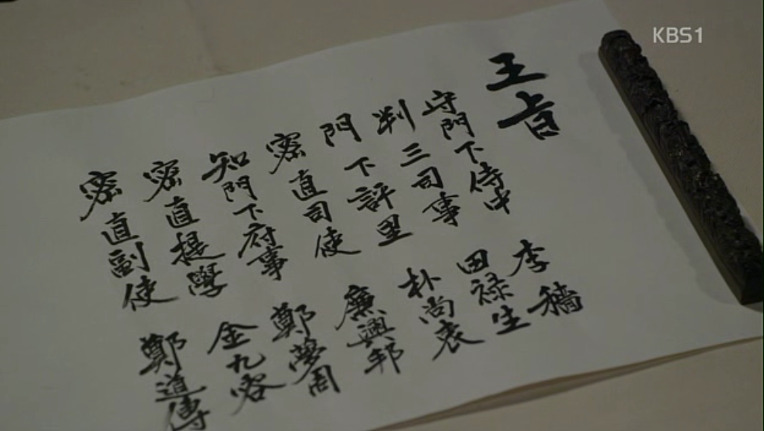 KBS1
王旨
守門下侍中 李穡
判三司事 田禄生
門下評里 朴尚衷
密直司使 廉興邦
知門下府事 鄭夢周
密直提學 金九容
密直副使 鄭道傳